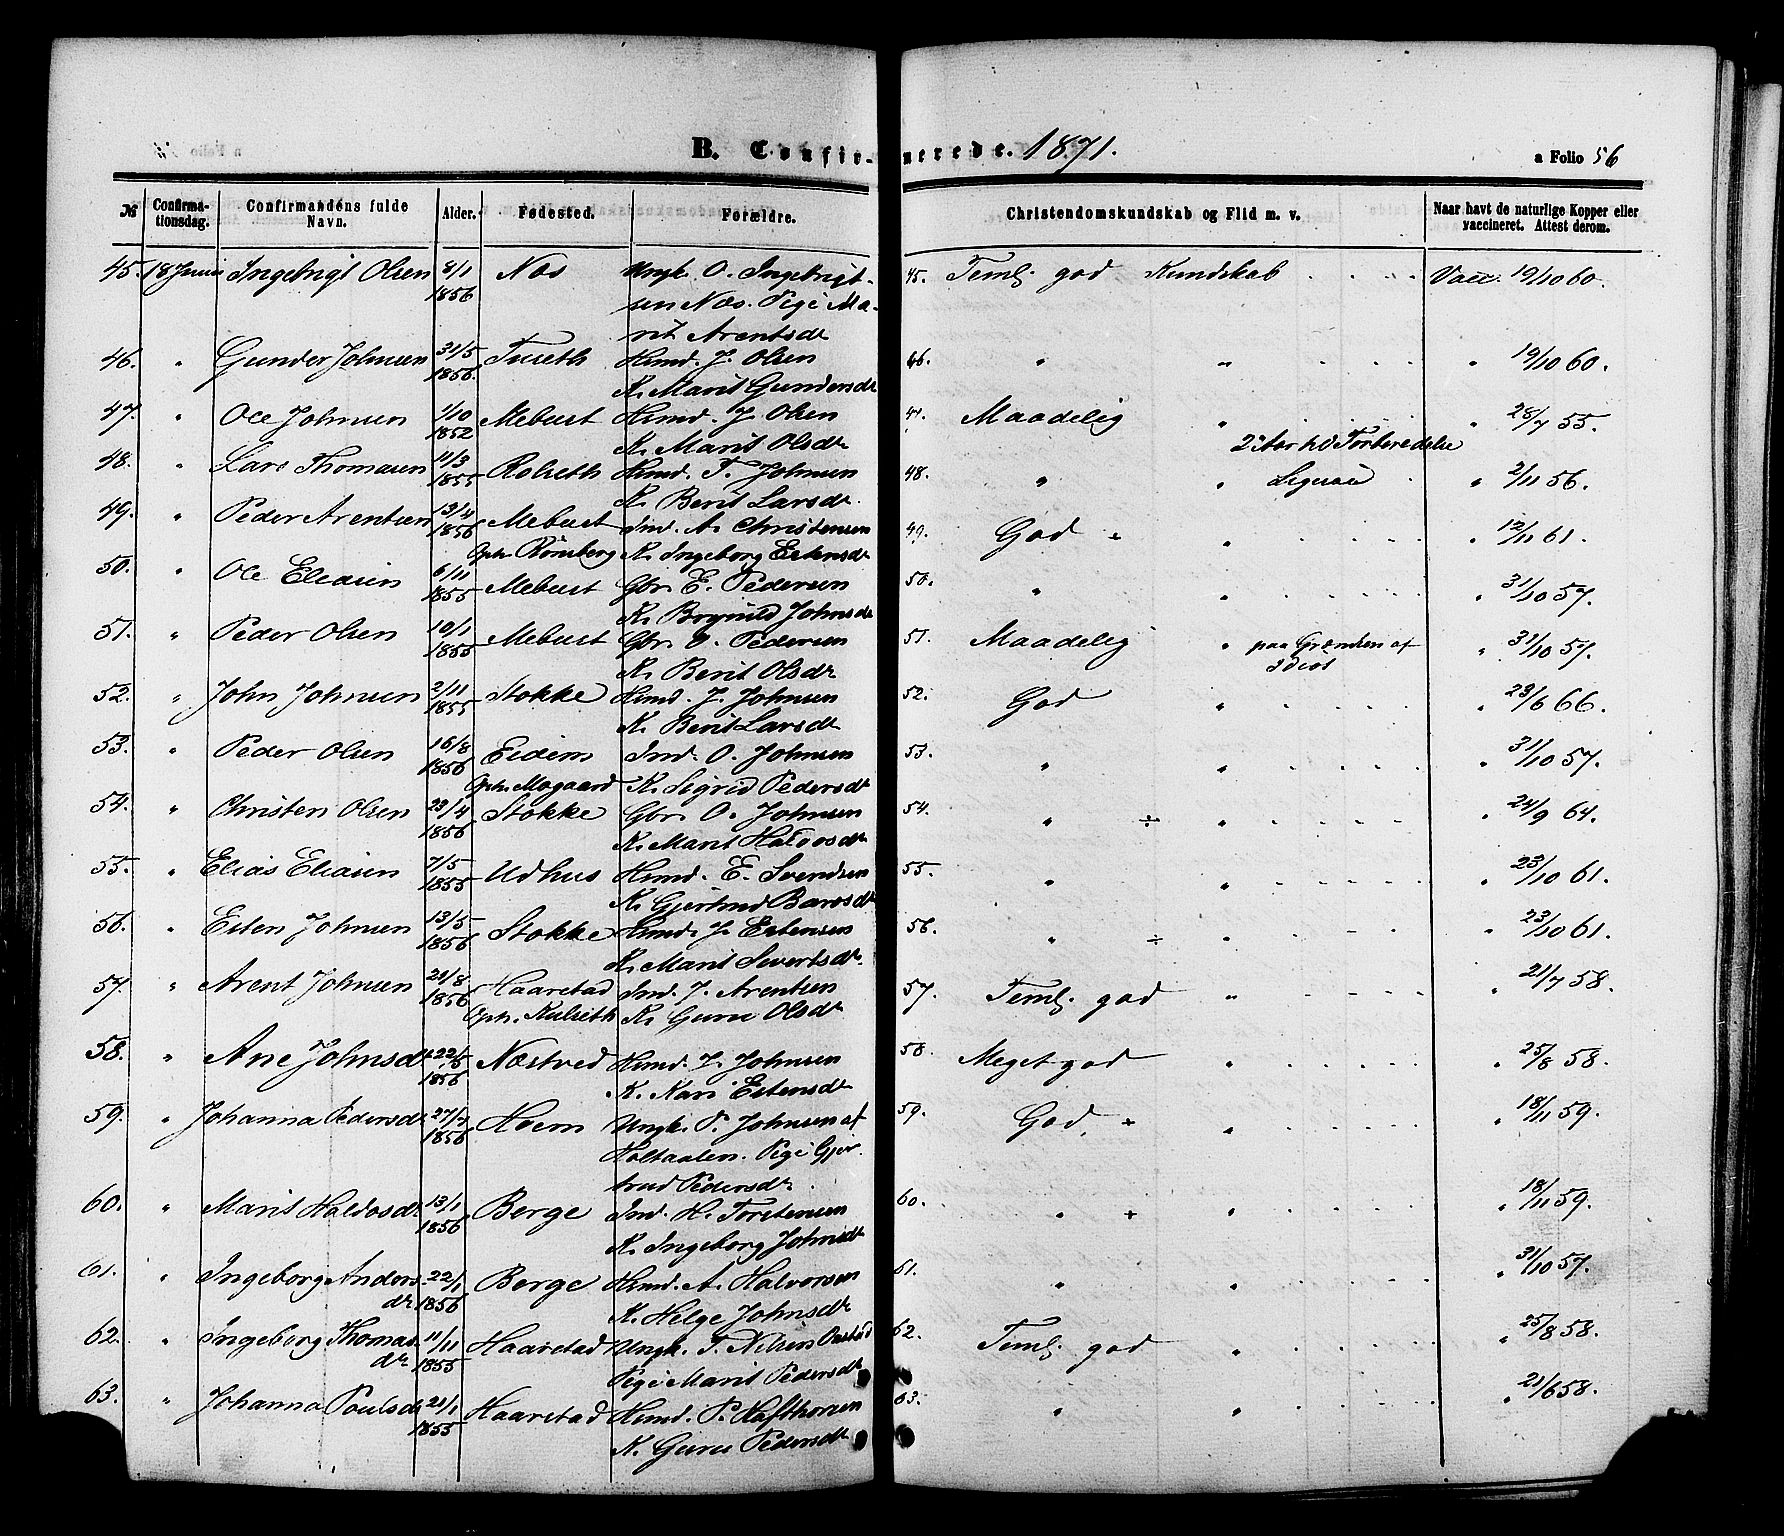 B. Confir-
nerede. 1871.
a Folio 56
№ Confirma-tionsdag. Confirmandens fulde Navn. Alder. Fødested. Forældre. Christendomskundskab og Flid m. v. Naar havt de naturlige Kopper eller vaccineret. Attest derom.
45. 18 Juni Ingebrigt Olsen 8/1 1856 Næs Ungk. O. Ingebrigt- 45. Teml. god Kundskab Vacc. 19/10 60.
sen Næs. Pige Ma-
rit Arentsdr
46. " Gunder Johnsen 31/5 1856. Tuseth Husmd. J. Olsen 46. " " " 19/10 60.
K. Marit Gundersdr
47. " Ole Johnsen 1/10 1852 Mebust Husmd. J. Olsen 47. Maadelig " " 28/7 55.
K. Marit Olsdr 2 Aar h. Forberedelse
48. " Lars Thomasen 11/3 1855 Rolseth Husmd. T. Johnsen 48. " " Ligesaa " 2/11 56.
K. Berit Larsdr
49. " Peder Arentsen 13/4 1856 Mebust Ind. A. Christensen 49. God + " " 12/11 61.
Oph. Rønsberg K. Ingeborg Estensdr
50. " Ole Eliasen 6/11 1855 Mebust Gbr. E. Pedersen 50. " " " 31/10 57.
K. Brynild Johnsdr
51. " Peder Olsen 10/1 1855 Mebust Gbr. O. Pedersen 51. Maadelig " paa Grændsen af Idiot " 31/10 57.
K. Berit Olsdr
52. " John Johnsen 2/11 1855 Stokke Husmd. J. Johnsen 52. God " " 23/6 66.
K. Berit Larsdr
53. " Peder Olsen 16/8 1856 Eidem Ind. O. Johnsen 53. " " " 31/10 57.
Oph. Mogaard K. Sigrid Pedersdr
54. " Christen Olsen 23/4 1856 Stokke Gbr. O. Johnsen 54. " ÷ " " 24/9 64.
K. Marit Haldosdr
55. " Elias Eliasen 7/5 1855 Udhus Husmd. E. Svendsen 55. " " " 23/10 61.
K. Gjertrud Baarsdr
56. " Esten Johnsen 13/5 1856 Stokke Husmd. J. Estensen 56. " ÷ " " 23/10 61.
K. Marit Sivertsdr.
57. " Arent Johnsen 21/8 1856 Haarstad Ind. J. Arentsen 57. Teml. god " " 21/7 58.
Oph. Kulseth K. Guru Olsdr
58. " Ane Johnsdr. 22/5 1856 Næstved Husmd. J. Johnsen 58. Meget god " " 25/8 58.
K. Kari Estensdr
59. " Johanna Pedersdr. 27/7 1856 Hoem Ungk. P. Johnsen af 59. God. + " " 18/11 59.
Holtaalen. Pige Gjer-
trud Pedersdr.
60. " Marit Haldosdr. 13/1 1856 Berge Ind. H. Torstensen 60. " + " 18/11 59.
K. Ingeborg Johnsdr
61. " Ingeborg Anders-dr. 22/1 1856 Berge Husmd. A. Halvorsen 61. " " " 31/10 57.
K. Helge Johnsdr
62. " Ingeborg Thomas-dr. 11/11 1855 Haarstad Ungk. T. Nilsen 62. Teml. god " " 25/8 58.
Pige Marit Pedersdr
63. " Johanna Poulsdr 21/1 1855 Haarstad Husmd. P. Hafthorsen 63. " " " 21/6 58.
K. Guru Pedersdr